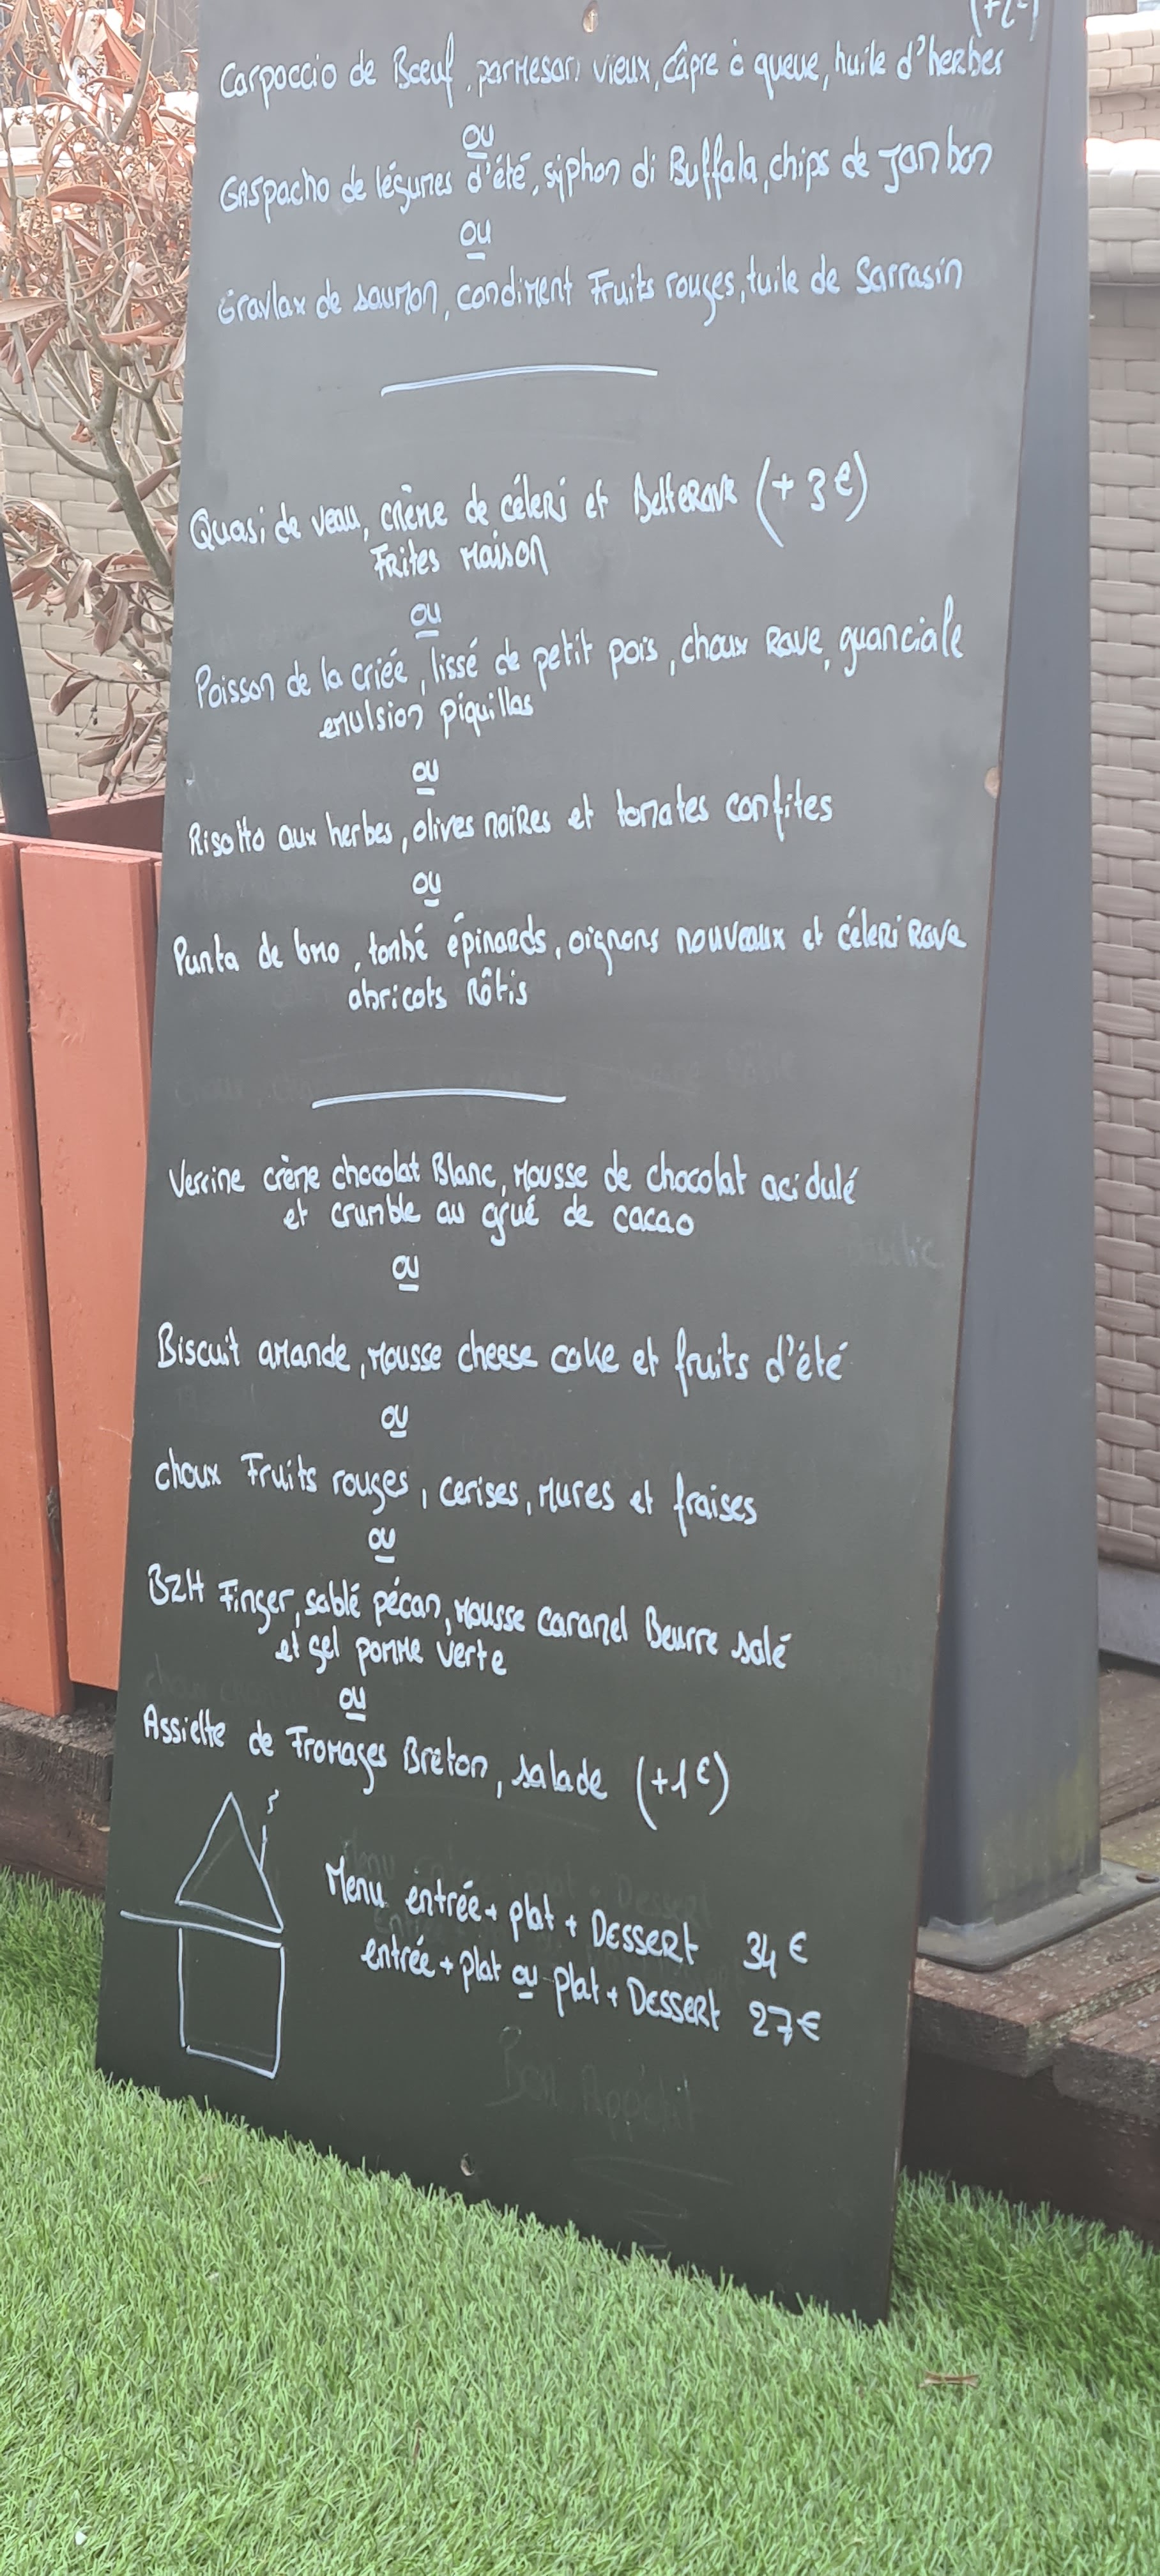 (+2€)
Carpaccio de Bœuf, parmesan vieux, câpre à queue, huile d'herbes
ou
Gaspacho de légumes d'été, siphon di Buffala, chips de Jambon
ou
Gravlax de saumon, condiment Fruits rouges, tuile de Sarrasin
Quasi de veau, crème de céleri et Betterave (+3€)
Frites Maison
ou
Poisson de la criée, lissé de petit pois, choux Rave, guanciale
emulsion piquillas
ou
Risotto aux herbes, olives noires et tomates confites
ou
Punta de bmo, tombé épinards, oignons nouveaux et céleri Rave
abricots Rôtis
Verrine crème chocolat Blanc, Mousse de chocolat acidulé
et crumble au grué de cacao
ou
Biscuit amande, Mousse cheese cake et fruits d'été
ou
choux Fruits rouges, cerises, Mures et fraises
ou
BZH Finger, sablé pécan, Mousse caramel Beurre salé
et gel pomme verte
ou
Assiette de Fromages Breton, salade (+1€)
Menu entrée + plat + Dessert 34€
entrée + plat ou plat + Dessert 27€
Bon Appétit